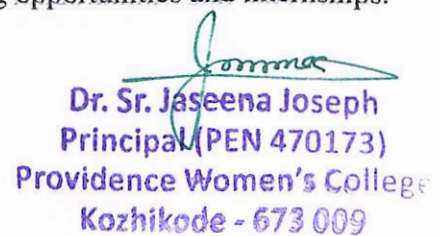 opportunities and internships.
Dr. Sr. Jaseena Joseph
Principal (PEN 470173)
Providence Women's College
Kozhikode - 673 009